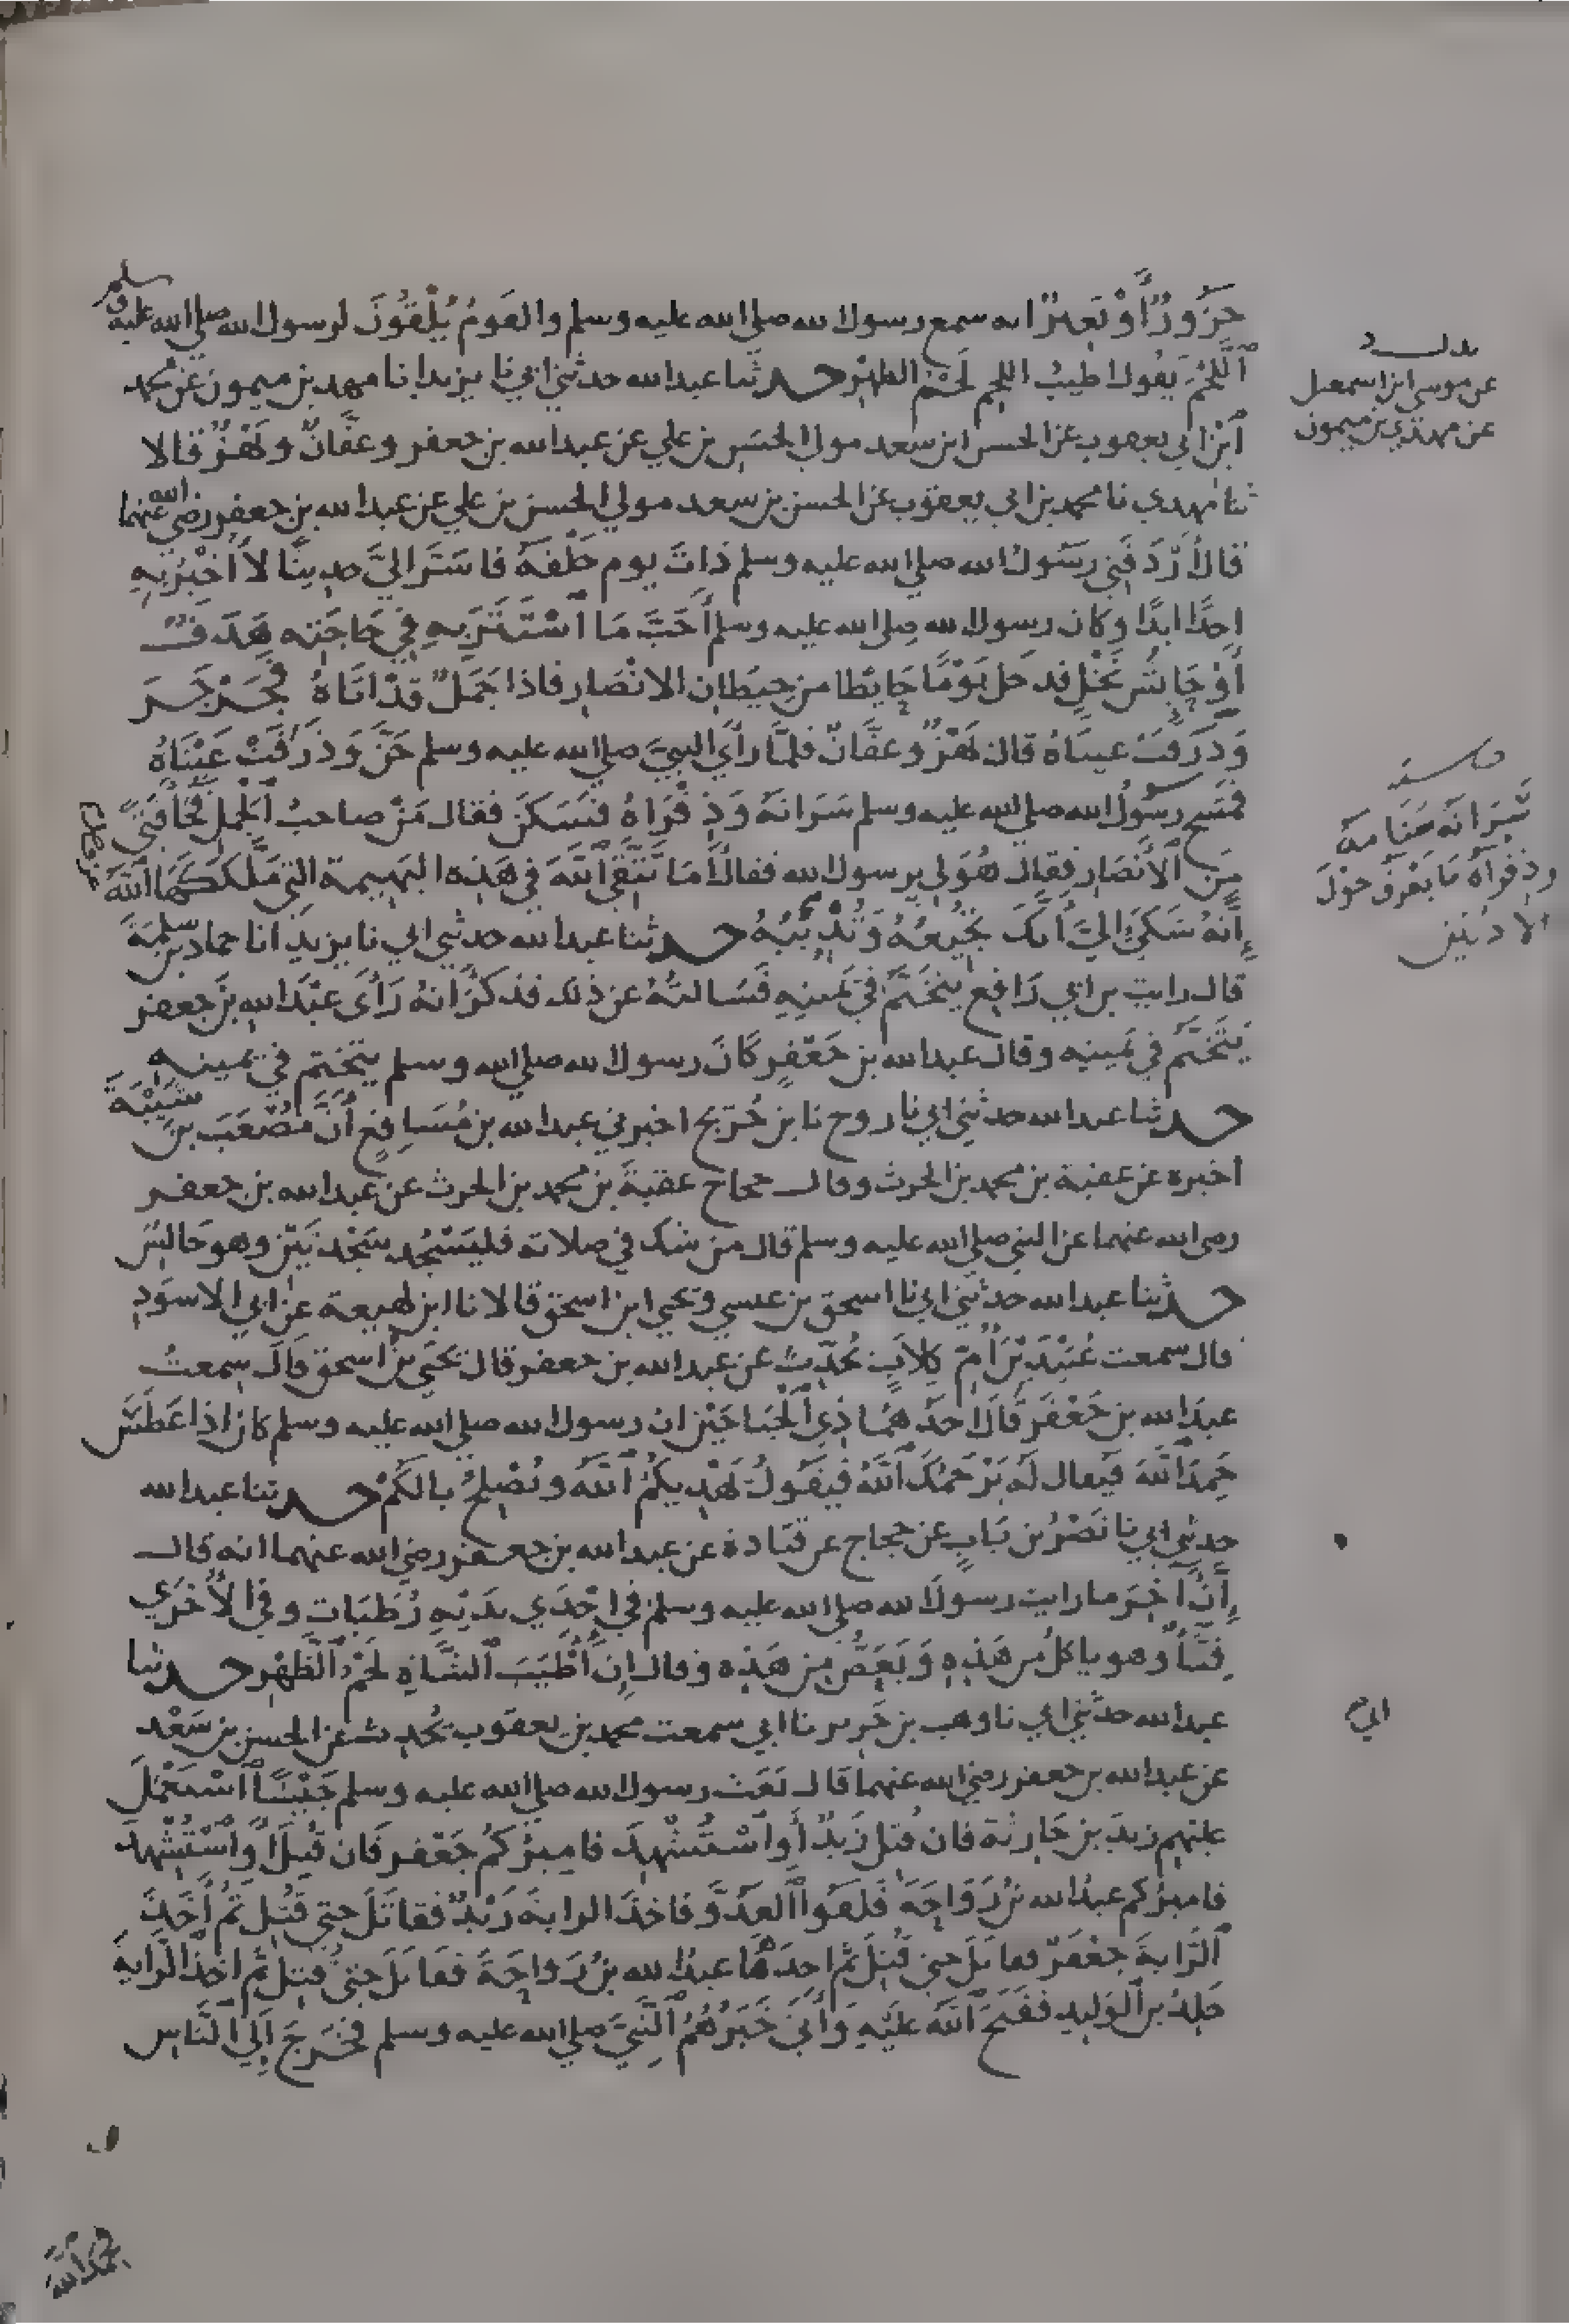 جزورا أو بعيرا انه سمع رسول الله صلى الله عليه وسلم والقوم يلقون لرسول الله صلى الله عليه وسلم
اللحم يقول اطيب اللحم لحم الظهر حدثنا عبد الله حدثني ابي نا يزيد انا مهدي بن ميمون عن محمد
ابن ابي يعقوب عن الحسن ابن سعد مولى الحسن بن علي عن عبد الله بن جعفر وعفان وبهز قالا
ثنا مهدي نا محمد بن ابي يعقوب عن الحسن بن سعد مولي الحسن بن علي عن عبد الله بن جعفر رضي الله عنهما
قال أردفني رسول الله صلى الله عليه وسلم ذات يوم خلفه فاسر الي حديثا لا أخبر به
احدا ابدا وكان رسول الله صلى الله عليه وسلم أحب ما استتر به في حاجته هدف
أو حايش نخل فدخل يوما حايطا من حيطان الانصار فاذا جمل قد اتاه فجرجر
وذرفت عيناه قال بهز وعفان فلما رأى النبي صلى الله عليه وسلم حن وذرفت عيناه
فمسح رسول الله صلى الله عليه وسلم سراته وذفراه فسكن فقال من صاحب الجمل فجا فتى
من الأنصار فقال هو لي يرسول الله فقال أما تتقي الله في هذه البهيمة التي ملككها الله
إنه شكى الي أنك تجيعه وتدئبه حدثنا عبد الله حدثني ابي نا يزيد انا حماد بن سلمة
قال رايت بن ابي رافع يتختم في يمينه فسالته عن ذلك فذكر أنه رأى عبد الله بن جعفر
يتختم في يمينه وقال عبد الله بن جعفر كان رسول الله صلى الله وسلم يتختم في يمينه
حدثنا عبد الله حدثني ابي نا روح نا بن جريج اخبرني عبد الله بن مسافع أن مصعب بن شيبة
اخبره عن عقبة بن محمد بن الحرث وقال حجاج عقبة بن محمد بن الحرث عن عبد الله بن جعفر
رضي الله عنهما عن النبي صلى الله عليه وسلم قال من شك في صلاته فليسجد سجدتين وهو جالس
حدثنا عبد الله حدثني ابي نا اسحق بن عيسي ويحيي ابن اسحق قالا نا ابن لهيعة عن ابي الاسود
قال سمعت عبيد بن أم كلاب يحدث عن عبد الله بن جعفر قال يحيى بن اسحق قال سمعت
عبد الله بن جعفر قال احدهما ذي الجناحين ان رسول الله صلى الله عليه وسلم كان اذا عطس
حمد الله فيقال له يرحمك الله فيقول يهديكم الله ويصلح بالكم حدثنا عبد الله
حدثني ابي نا نصر بن باب عن حجاج عن قتادة عن عبد الله بن جعفر رضي الله عنهما انه قال
إن آخر ما رايت رسول الله صلى الله عليه وسلم في احدي يديه رطبات وفي الأخرى
قثاء وهو ياكل من هذه وبعض من هذه وقال إن أطيب الشاة لحم الظهر حدثنا
عبد الله حدثني ابي نا وهب بن جرير نا ابي سمعت محمد بن يعقوب يحدث عن الحسن بن سعد
عن عبد الله بن جعفر رضي الله عنهما قال بعث رسول الله صلى الله عليه وسلم جيشا استعمل
عليهم زيد بن حارثة فان قتل زيد أو استشهد فاميركم جعفر فان قتل أو استشهد
فاميركم عبد الله بن رواحة فلقوا العدو فاخذ الراية زيد فقاتل حتى قتل ثم أخذ
الراية جعفر فقاتل حتى قتل ثم اخذها عبد الله بن رواحة فقاتل حتى قتل ثم اخذ الراية
خلد بن الوليد ففتح الله عليه وأتى خبرهم النبي صلى الله عليه وسلم فخرج إلى الناس
عن موسى ابن اسمعيل
عن مهدي بن ميمون
حاشية
سراته سنامه
وذفراه ما يعرق حول
الاذنين
ابي
الحمد لله